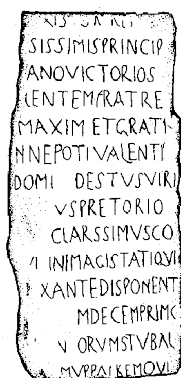 SISSIMISPRINCIP
ANOVICTORIOS
LENTEMFRATRE
MAXIM ETGRATI
NNEPOTIVALENTI
DOMI DESTUSVIRI
VSPRETORIO
CLARSSIMVSCO
INIMAGISTATIQVI
XANTEDISPONENT
MDECEMPRIMO
ORVMSTVBAL